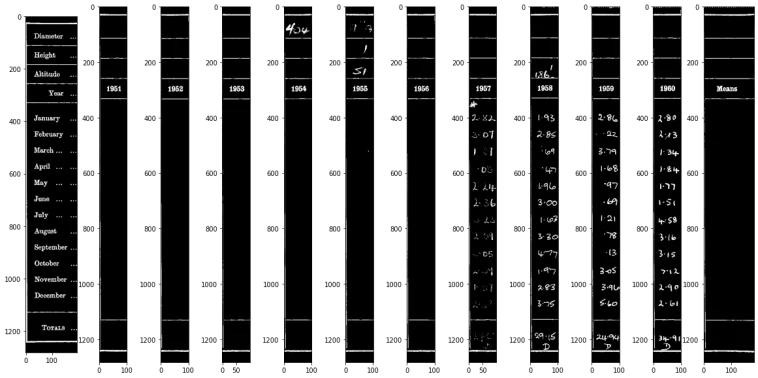 Diameter ...
Height ...
Altitude ...
Year ...
January ...
February ...
March ... ...
April ... ...
May ... ...
June ... ...
July ... ...
August ...
September ...
October ...
November ...
December ...
TOTALS ...
0
200
400
600
800
1000
1200
0 100
1951
0
200
400
600
800
1000
1200
0 100
1952
0
200
400
600
800
1000
1200
0 100
1953
0
200
400
600
800
1000
1200
0 50
1954
0
200
400
600
800
1000
1200
0 100
51
1955
0
200
400
600
800
1000
1200
0 100
1956
0
200
400
600
800
1000
1200
0 100
1957
2.82
3.07
2.24
2.36
0
200
400
600
800
1000
1200
0 50
186
1958
1.93
2.85
.69
.47
1.96
3.00
1.63
3.30
4.77
1.97
2.83
3.75
29.15
D
0
200
400
600
800
1000
1200
0 100
1959
2.86
.22
3.79
1.68
.97
.69
1.21
.78
.13
3.05
3.96
5.60
24.94
D
0
200
400
600
800
1000
1200
0 100
1960
2.80
2.13
1.34
1.84
1.77
1.51
4.58
3.16
3.15
7.12
2.90
2.61
34.91
D
0
200
400
600
800
1000
1200
0 100
Means
0
200
400
600
800
1000
1200
0 100